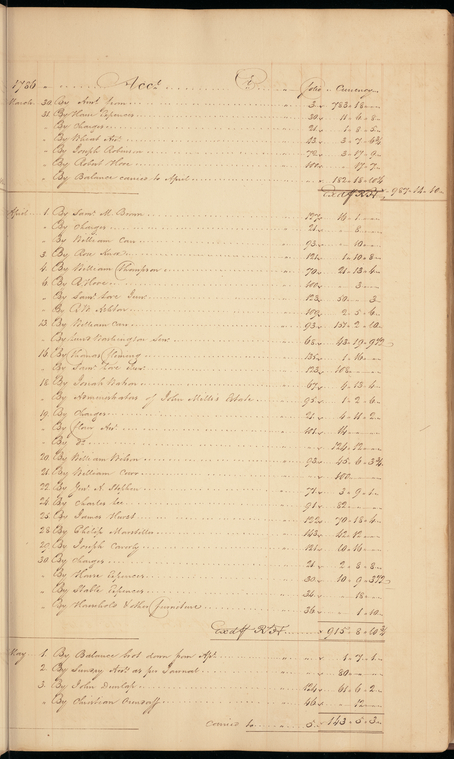 1786 Acct Cr
folio Currency
March 30 By Amt from 3 783.18
31 By House Expences 30 11.6.8
By Charges 21 1.8.5
By Wheat Act
By Joseph Robinson 72 3.17.9
By Robert Hove 100 17.7
By Balance carried to April 182.18.10½
Exd RH 987.12.10
April 1 By Saml M. Brown 127 16.1
By Charges 21 8
By William Carr 93 10
3 By 121 1.10.8
4 By William Thompson 70 21.13.4
6 By R Hove 100 3
By Saml Love Junr 123 50 3
By W Ashton 109 2.5.6
13 By William Carr 93 157.2.10
By Lund Washington 68 43.19.9½
14 By Thomas Fleming 135 1.16
By Saml Love Junr 123 108
18 By Josiah Watson 67 4.13.4
By Administrators of John Mills's Estate 95 1.2.6
19 By Charges 21 4.11.2
By Flour Act 101 14
By Do 124.12
20 By William Wilson 93 45.6.3¾
21 By William Carr 100
22 By Jno. A. Stephen 71 3.9.1
24 By Charles Lee 91 82
25 By James Hurst 122 70.18.4
28 By Philip Marsteller 143 42.12
29 By Joseph 121 10.16
30 By Charges 21 2.8.8
By House Expences 30 10.9.3½
By Stable Expences 34 18
By Household & other furniture 36 1.10
Exd RH 915.8.10¾
May 1 By Balance brot down from Apl 1.7.1
2 By Sundry Accts as per Journal 80
3 By John Dunlap 124 61.6.2
By Christian 46
carried to 5 143.5.3